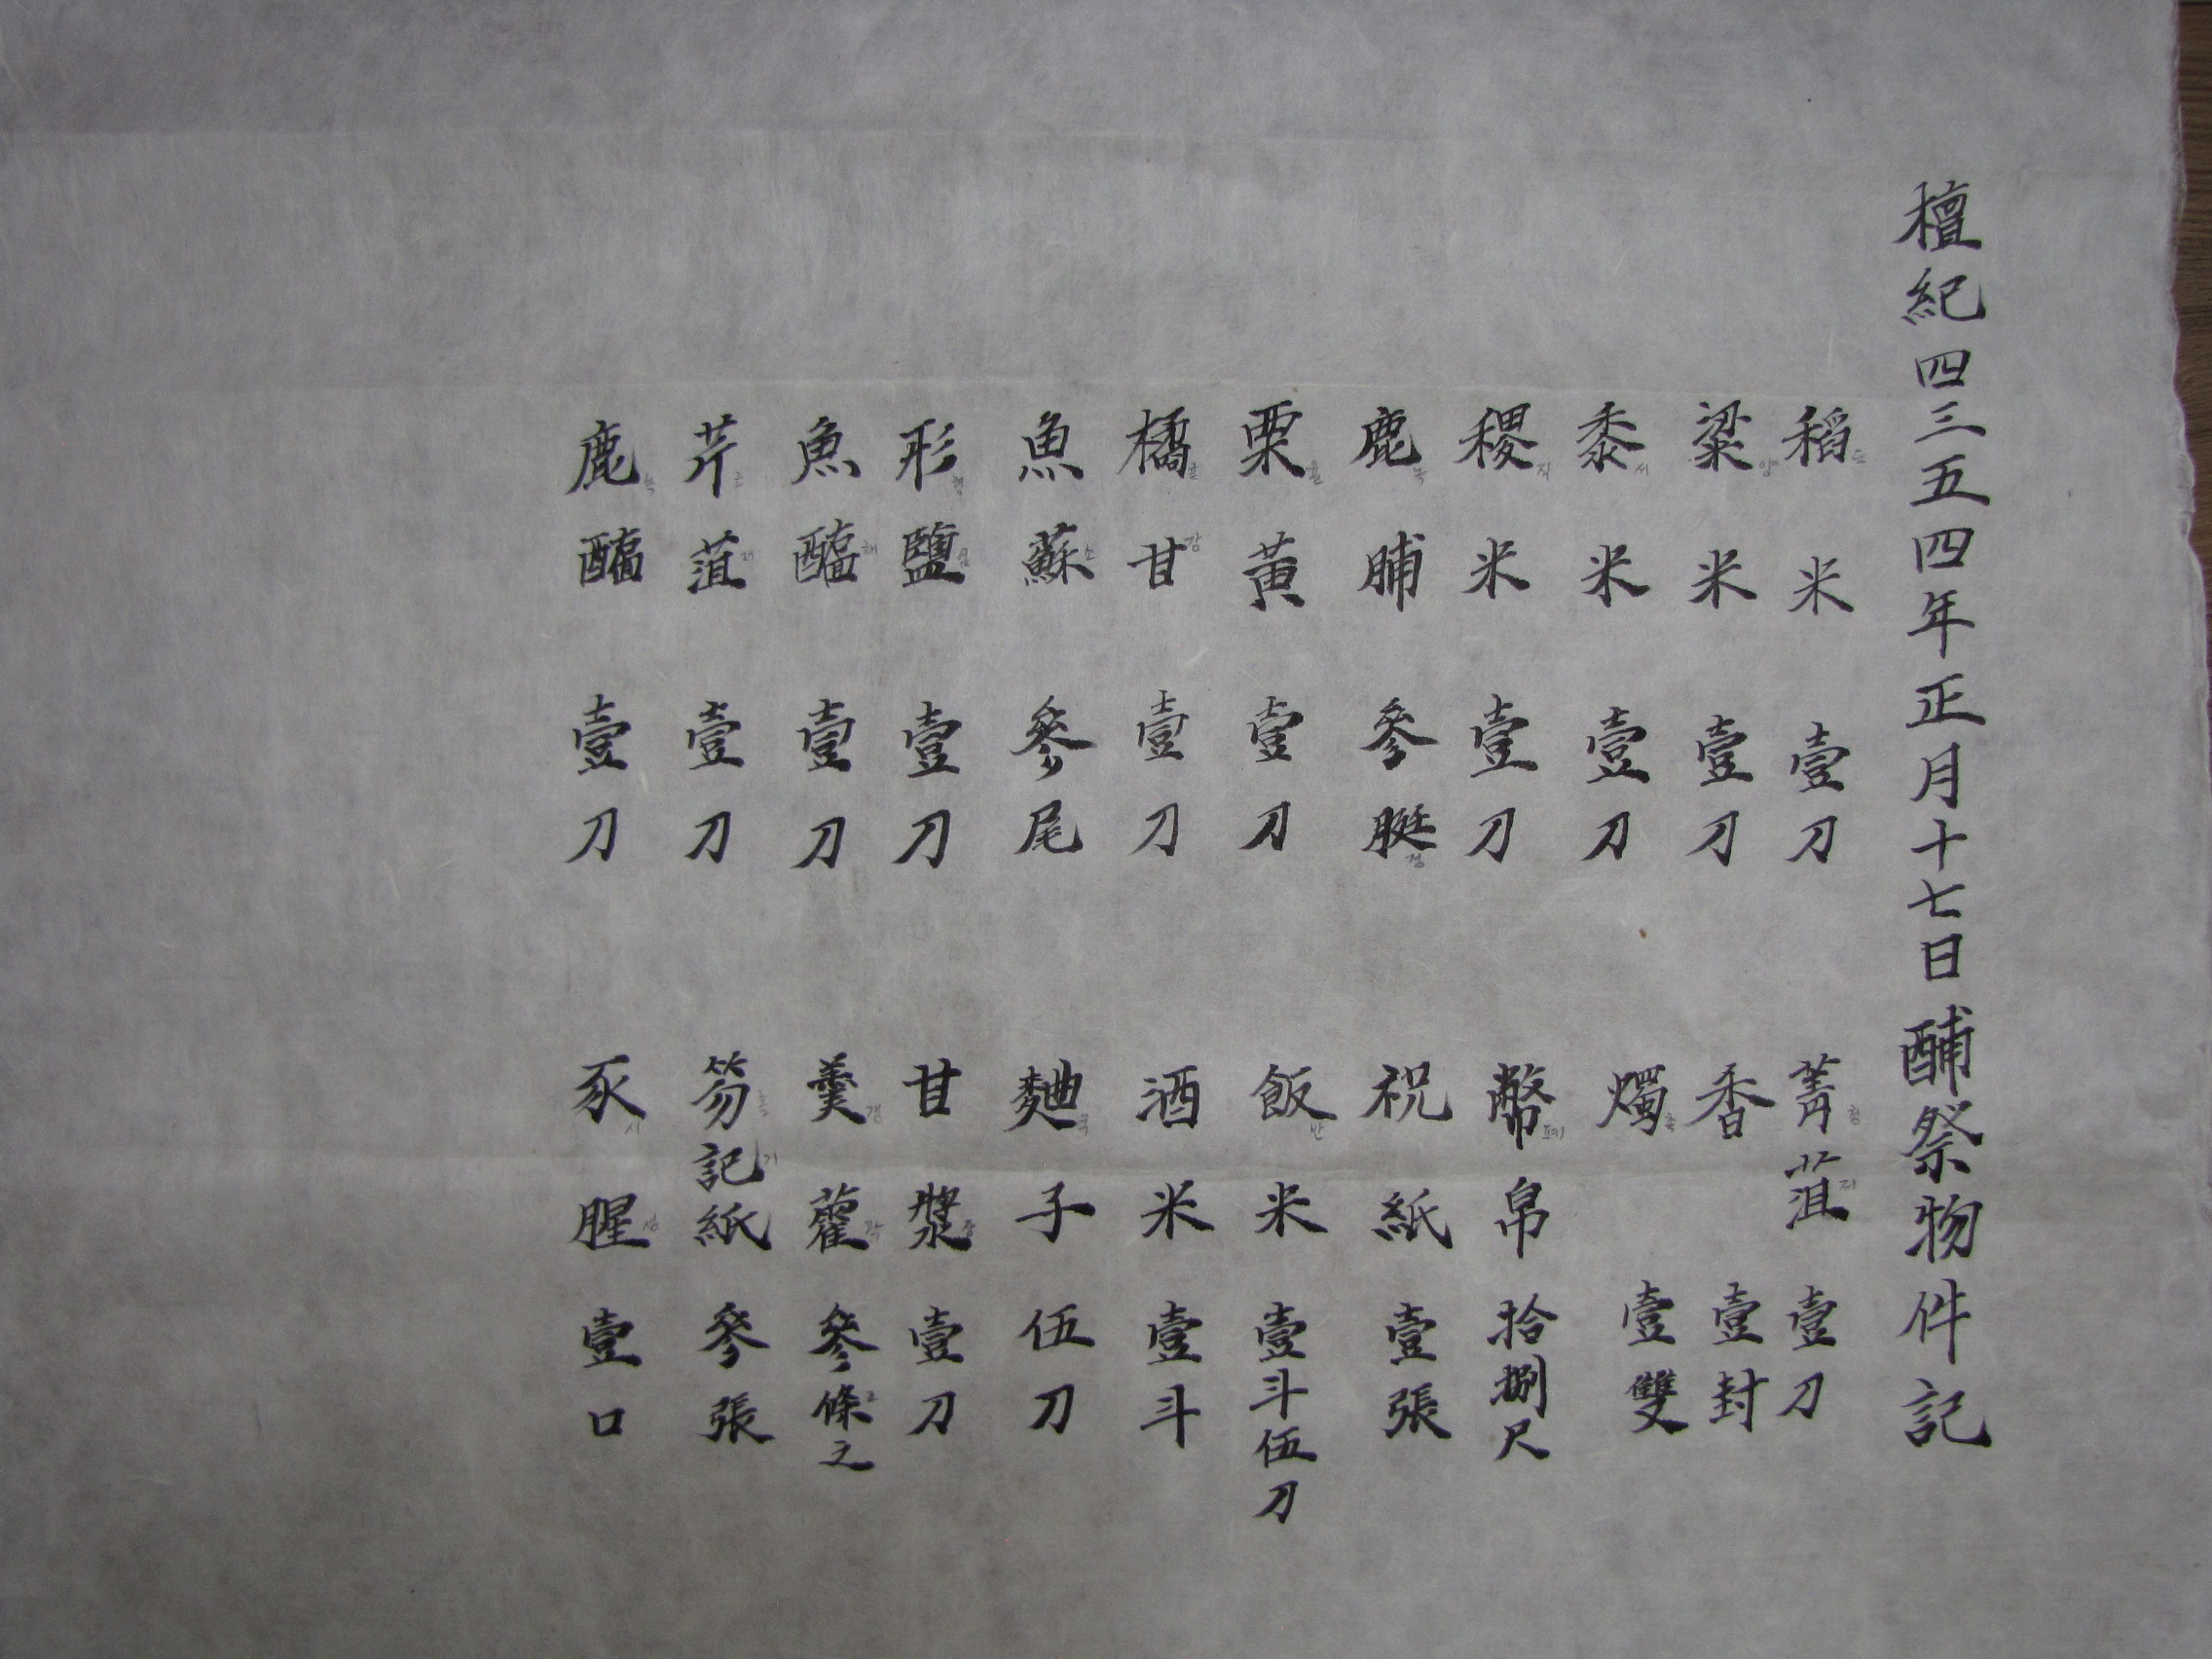 檀紀四三五四年正月十七日酺祭物件記
稻米 壹刀
粱米 壹刀
黍米 壹刀
稷米 壹刀
鹿脯 參脡
栗黃 壹刀
橘甘 壹刀
魚蘇 參尾
形鹽 壹刀
魚醢 壹刀
芹菹 壹刀
鹿醢 壹刀
菁菹 壹刀
香 壹封
燭 壹雙
幣帛 拾捌尺
祝紙 壹張
飯米 壹斗伍刀
酒米 壹斗
麯子 伍刀
甘漿 壹刀
羹藿 參條之
笏記紙 參張
豕腥 壹口